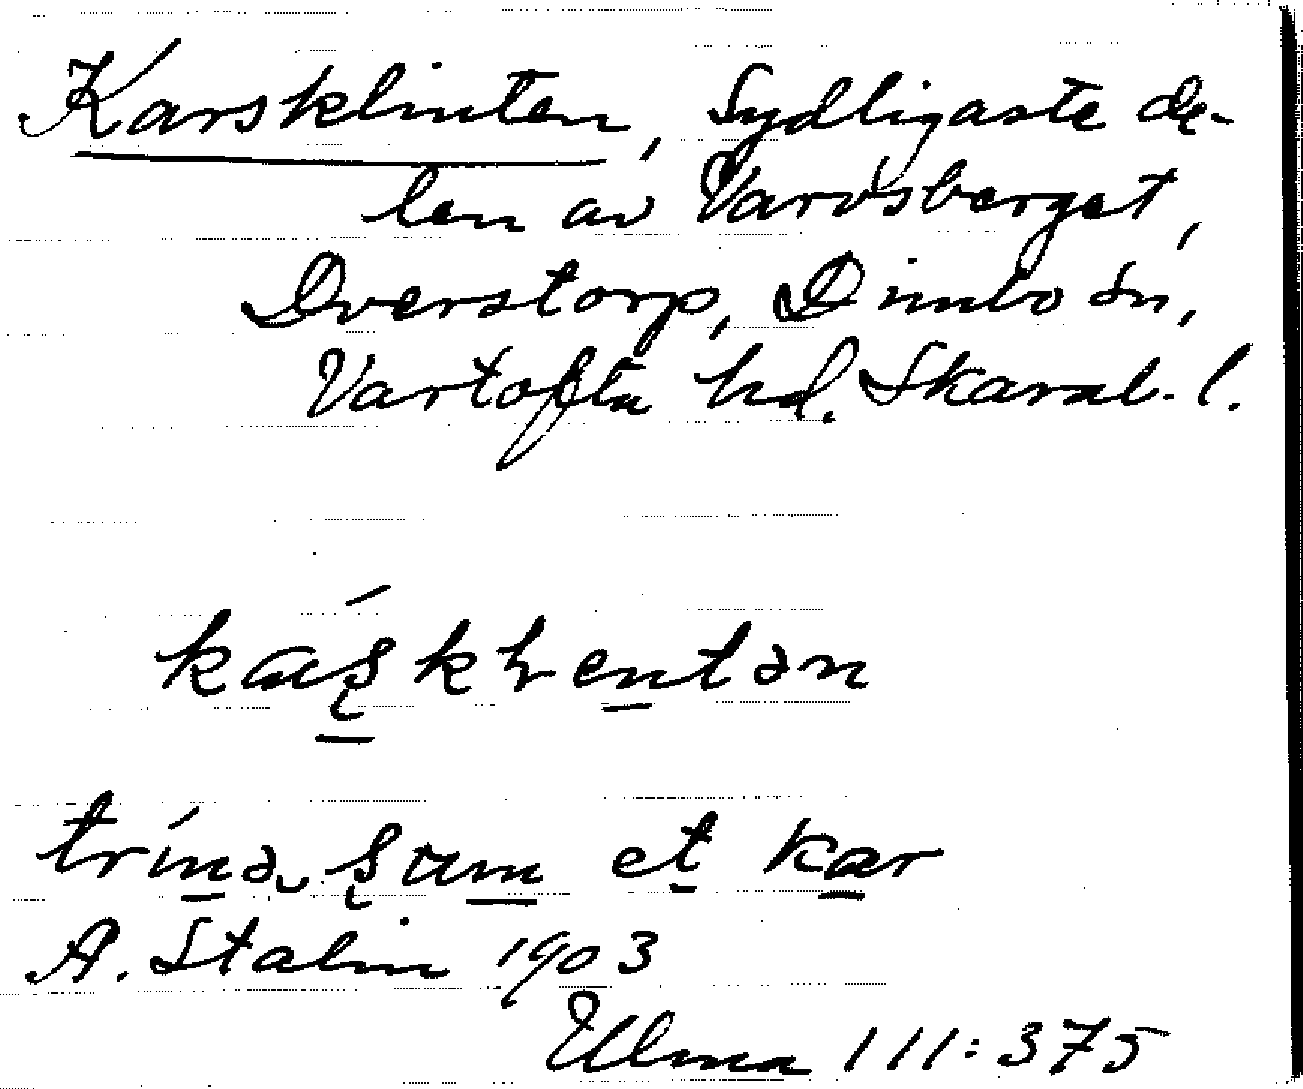 Karsklinten, Sydligaste de-
len av Varvsberget,
Dverstorp, Dimbo sn,
Vartofta hd. Skarab. l.
káʂkⱡentən
trínə ʂɯm et kar
A. Stalin 1903
Ulma 111:375